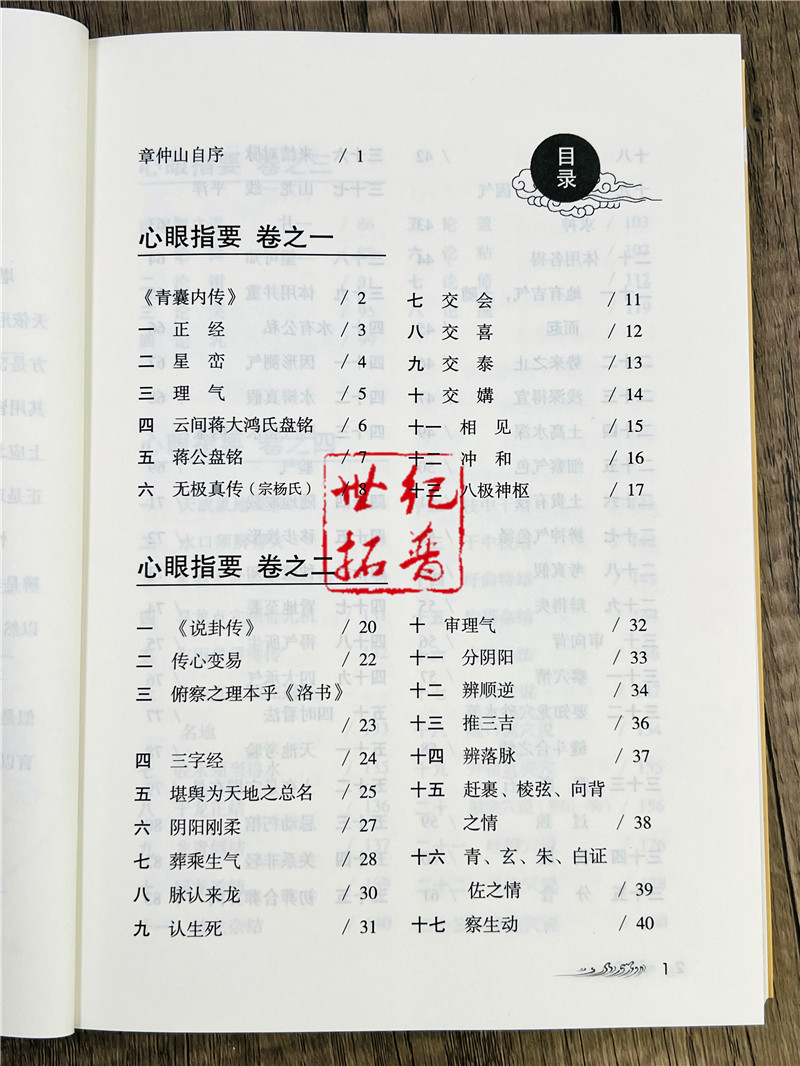 目录
章仲山自序 / 1
心眼指要 卷之一
《青囊内传》 / 2
一 正 经 / 3
二 星 峦 / 4
三 理 气 / 5
四 云间蒋大鸿氏盘铭 / 6
五 蒋公盘铭 / 7
六 无极真传（宗杨氏） / 8
七 交 会 / 11
八 交 喜 / 12
九 交 泰 / 13
十 交 媾 / 14
十一 相 见 / 15
十二 冲 和 / 16
十三 八极神枢 / 17
世纪
拓普
心眼指要 卷之二
一 《说卦传》 / 20
二 传心变易 / 22
三 俯察之理本乎《洛书》
/ 23
四 三字经 / 24
五 堪舆为天地之总名 / 25
六 阴阳刚柔 / 27
七 葬乘生气 / 28
八 脉认来龙 / 30
九 认生死 / 31
十 审理气 / 32
十一 分阴阳 / 33
十二 辨顺逆 / 34
十三 推三吉 / 36
十四 辨落脉 / 37
十五 赶裹、棱弦、向背
之情 / 38
十六 青、玄、朱、白证
佐之情 / 39
十七 察生动 / 40
1